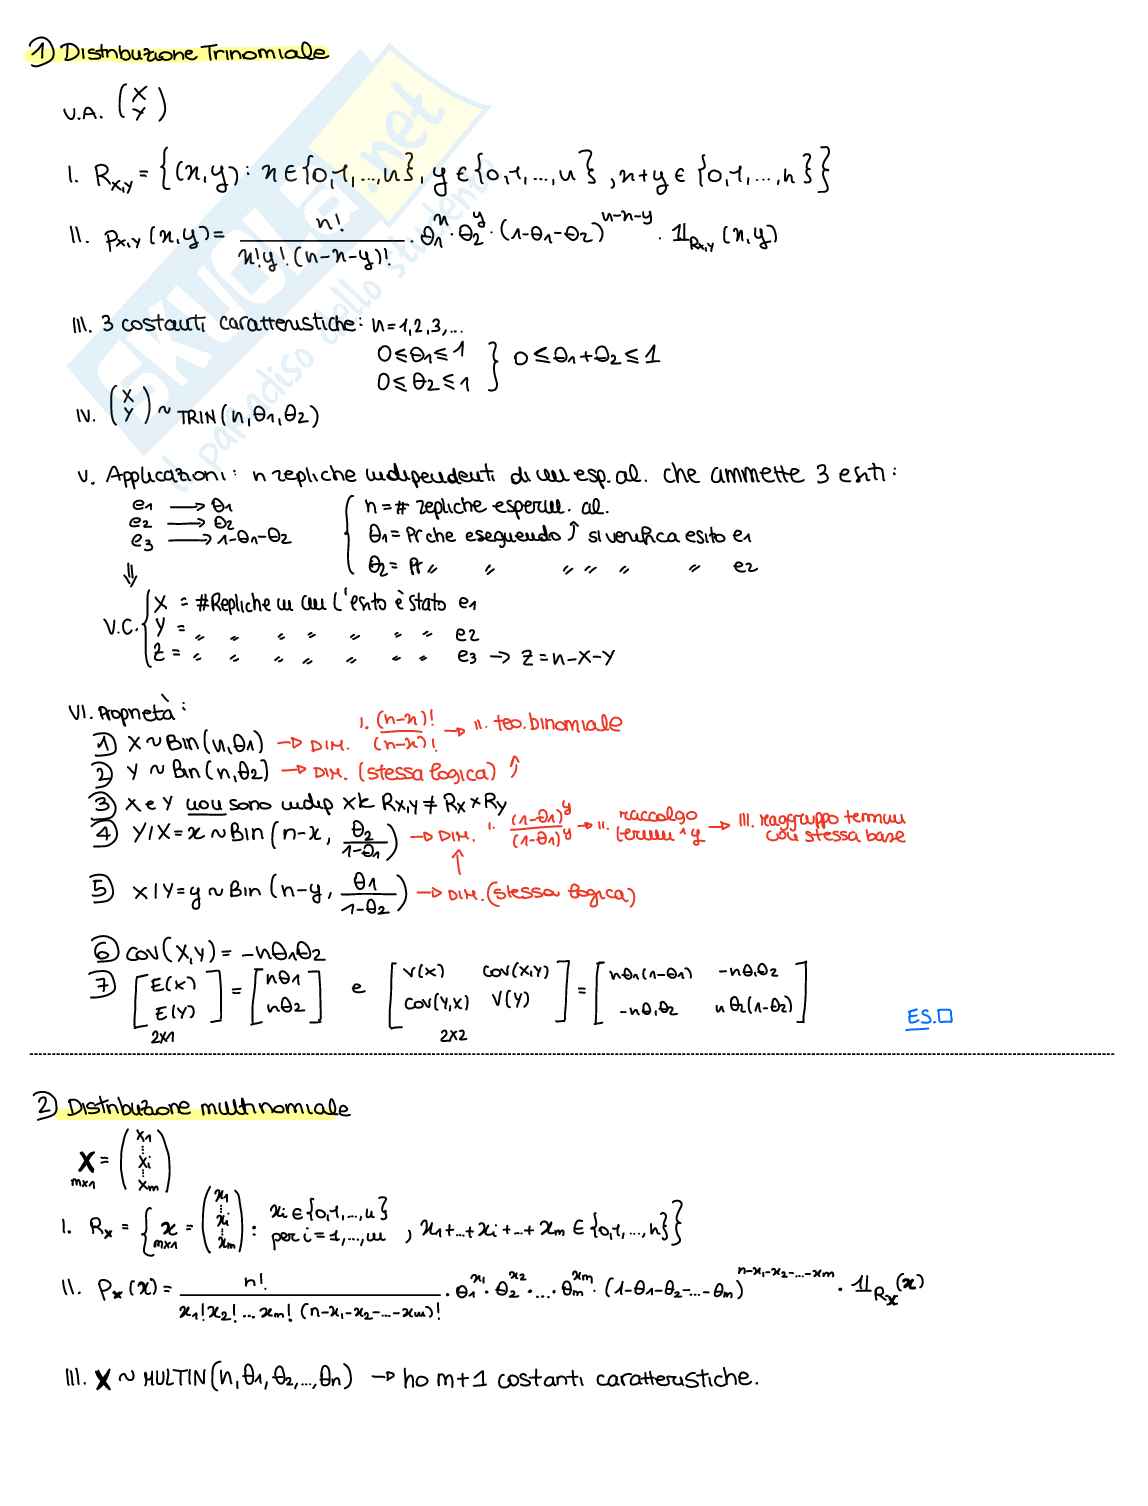 ① Distribuzione Trinomiale
V.A. (X Y)
I. R_{X,Y} = {(x,y): x ∈ {0,1,...,n}, y ∈ {0,1,...,n}, x+y ∈ {0,1,...,n}}
II. p_{X,Y}(x,y) = n! / (x! y! (n-x-y)!) · θ1^x · θ2^y · (1-θ1-θ2)^{n-x-y} · 𝟙_{R_{X,Y}}(x,y)
III. 3 costanti caratteristiche: n=1,2,3,...
0≤θ1≤1
0≤θ2≤1 } 0≤θ1+θ2≤1
IV. (X Y) ~ TRIN(n,θ1,θ2)
V. Applicazioni: n repliche indipendenti di un esp. al. che ammette 3 esiti:
e1 → θ1
e2 → θ2
e3 → 1-θ1-θ2
⇓
{ n = # repliche esperim. al.
θ1 = Pr che eseguendo ↑ si verifica esito e1
θ2 = Pr " " " " " " e2
V.C. { X = #Repliche in cui l'esito è stato e1
Y = " " " " " " " e2
Z = " " " " " " " e3 → Z = n-X-Y
VI. Proprietà:
① X~Bin(n,θ1) → DIM. I. (n-x)!/(n-x)! → II. teo. binomiale
② Y~Bin(n,θ2) → DIM. (stessa logica) ↑
③ X e Y non sono indip xk R_{X,Y} ≠ R_X × R_Y
④ Y/X=x ~ Bin(n-x, θ2/(1-θ1)) → DIM. I. (1-θ1)^y/(1-θ1)^y → II. raccolgo termini ^ y → III. raggruppo termini con stessa base
⑤ X|Y=y ~ Bin(n-y, θ1/(1-θ2)) → DIM. (stessa logica)
⑥ COV(X,Y) = -nθ1θ2
⑦ [E(X) E(Y)] 2x1 = [nθ1 nθ2] e [V(X) COV(X,Y) COV(Y,X) V(Y)] 2x2 = [nθ1(1-θ1) -nθ1θ2 -nθ1θ2 nθ2(1-θ2)]
ES.□
② Distribuzione multinomiale
X mx1 = (X1 ⋮ Xi ⋮ Xm)
I. R_X = { x mx1 = (x1 ⋮ xi ⋮ xm) : xi ∈ {0,1,...,n} per i=1,...,m , x1+...+xi+...+xm ∈ {0,1,...,n}}
II. p_X(x) = n! / (x1! x2! ... xm! (n-x1-x2-...-xm)!) · θ1^{x1} · θ2^{x2} · ... · θm^{xm} · (1-θ1-θ2-...-θm)^{n-x1-x2-...-xm} · 𝟙_{R_X}(x)
III. X ~ MULTIN(n,θ1,θ2,...,θn) → ho m+1 costanti caratteristiche.
SKUOLA.net
il paradiso dello studente